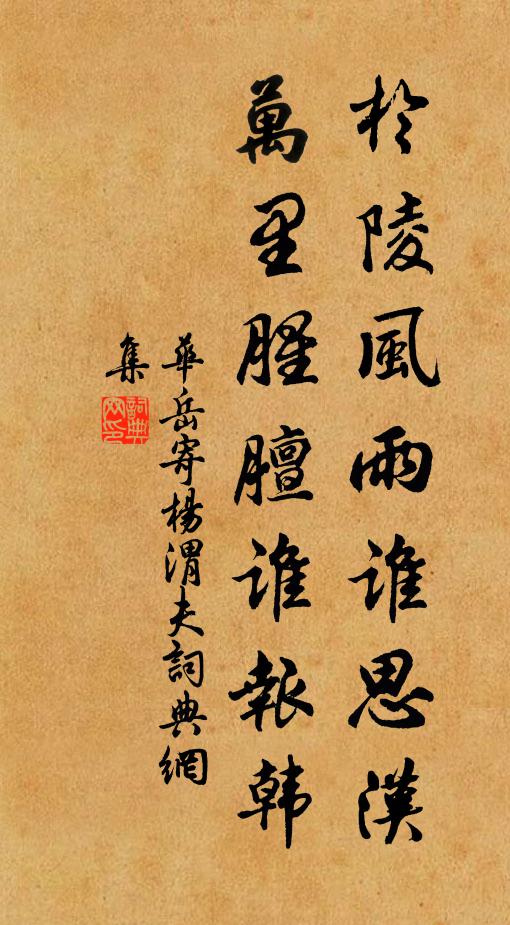 於陵風雨誰思漢
萬里腥膻誰報韩
華岳寄楊渭夫詞典網
集
詞典
网印